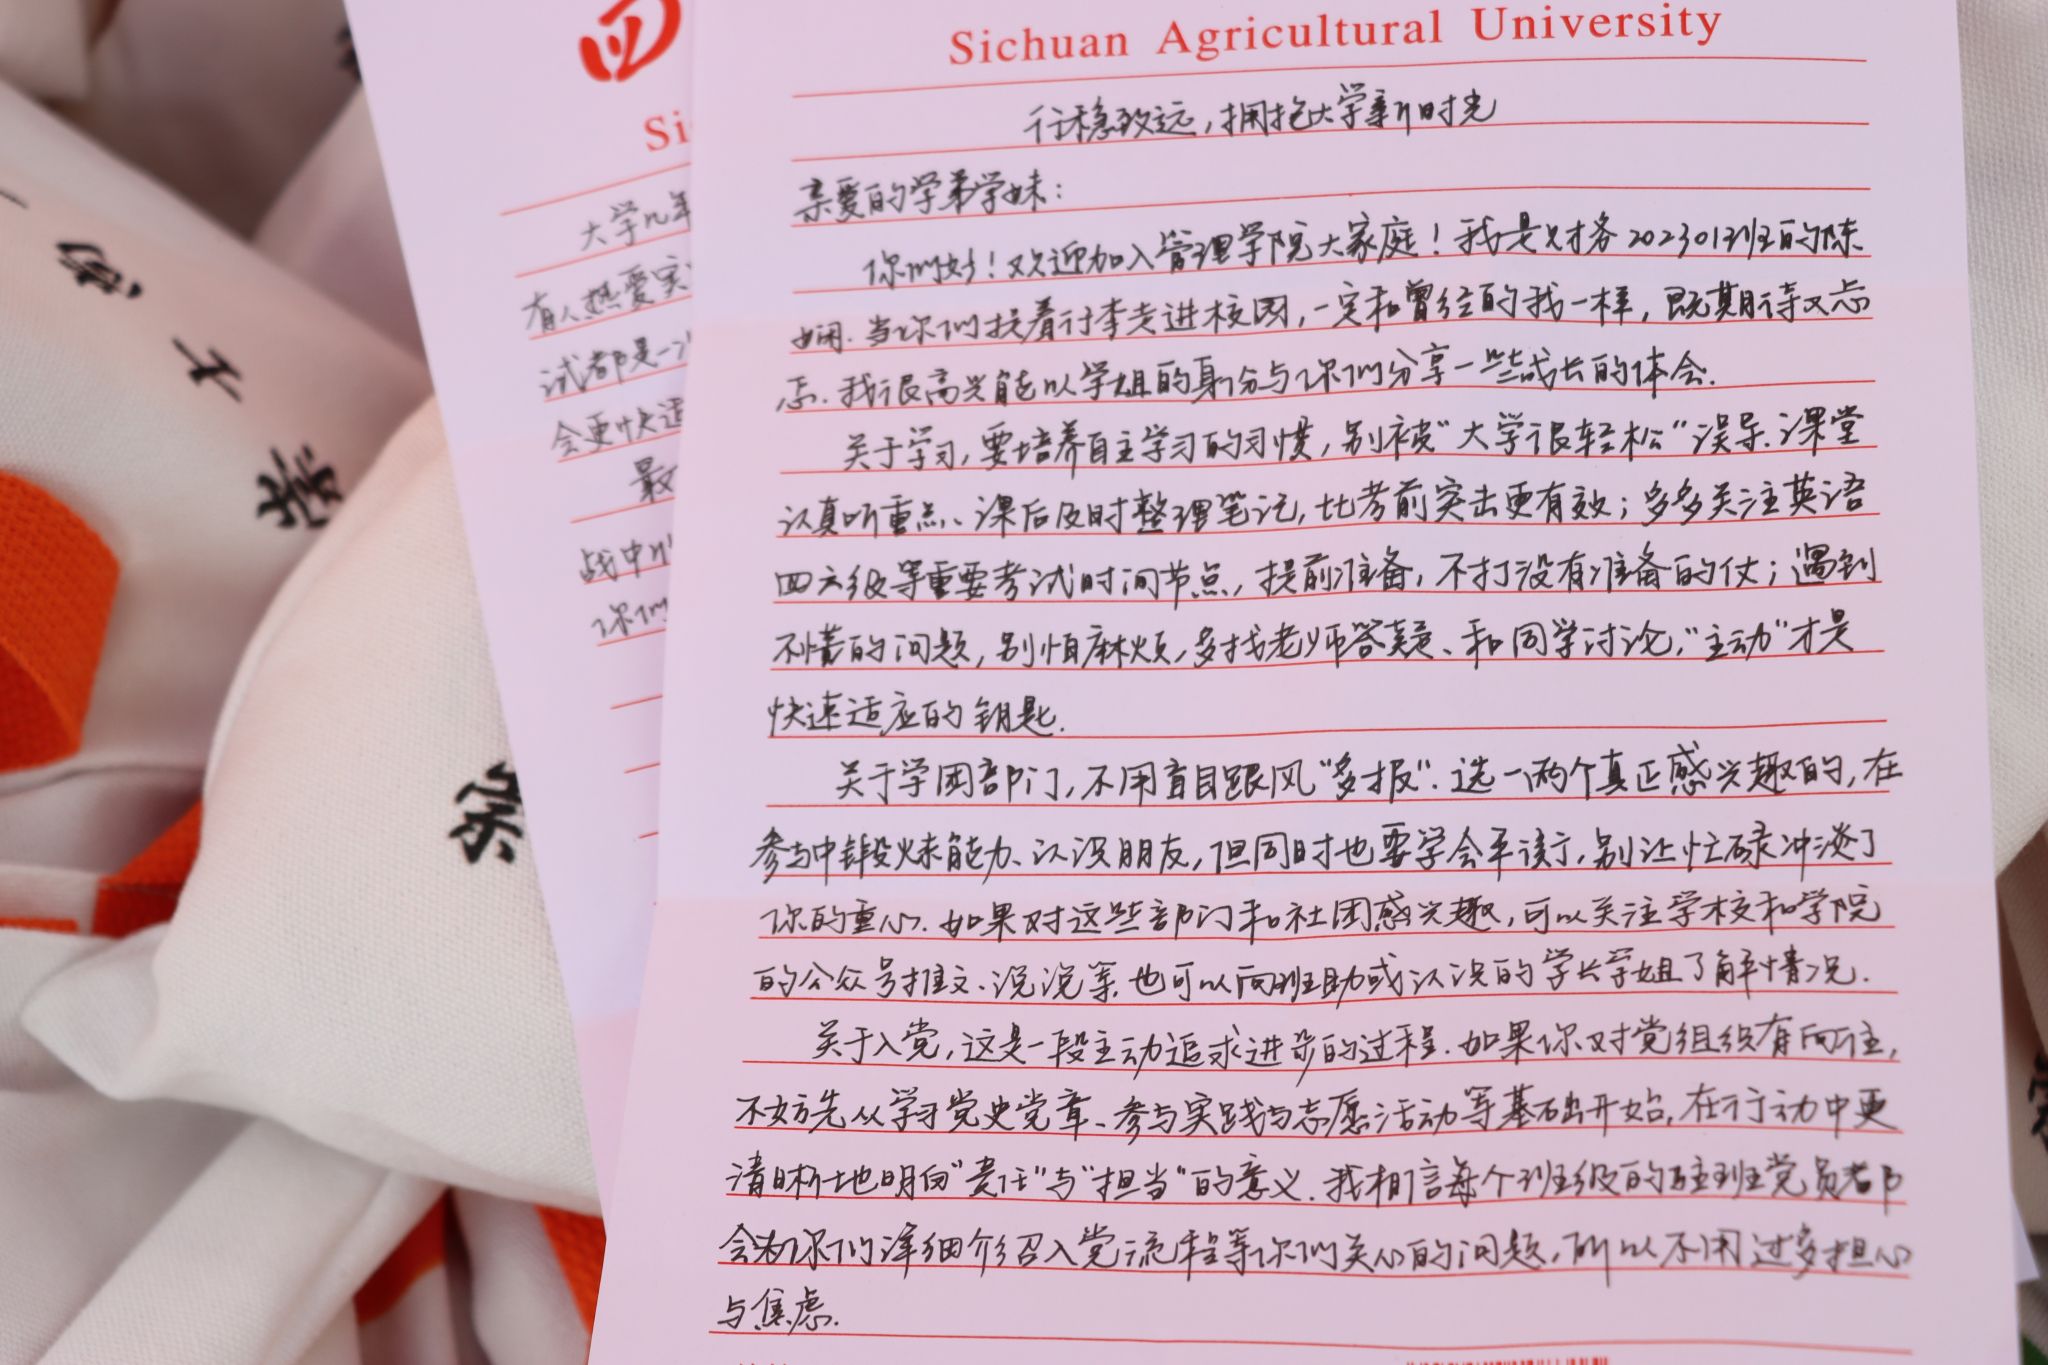 Sichuan Agricultural University
行稳致远，拥抱大学新时光
亲爱的学弟学妹：
你们好！欢迎加入管理学院大家庭！我是财务202301班的陈
娴.当你们拉着行李走进校园，一定和曾经的我一样，既期待又忐
忑.我很高兴能以学姐的身份与你们分享一些成长的体会.
关于学习，要培养自主学习的习惯，别被“大学很轻松”误导.课堂
认真听重点、课后及时整理笔记，比考前突击更有效；多多关注英语
四六级等重要考试时间节点，提前准备，不打没有准备的仗；遇到
不懂的问题，别怕麻烦，多找老师答疑、和同学讨论，“主动”才是
快速适应的钥匙.
关于学团部门，不用盲目跟风“多报”.选一两个真正感兴趣的，在
参与中锻炼能力、认识朋友，但同时也要学会平衡，别让忙碌冲淡了
你的重心.如果对这些部门和社团感兴趣，可以关注学校和学院
的公众号推文、说说等.也可以向班助或认识的学长学姐了解情况.
关于入党，这是一段主动追求进步的过程.如果你对党组织有向往，
不妨先从学习党史党章、参与实践与志愿活动等基础开始，在行动中更
清晰地明白“责任”与“担当”的意义.我相信每个班级的驻班党员都
会为你们详细介绍入党流程等你们关心的问题，所以不用过多担心
与焦虑.
四
Si
大学几年
有人热爱实
试都是一
会更快适
最
战中
你们
学
崇